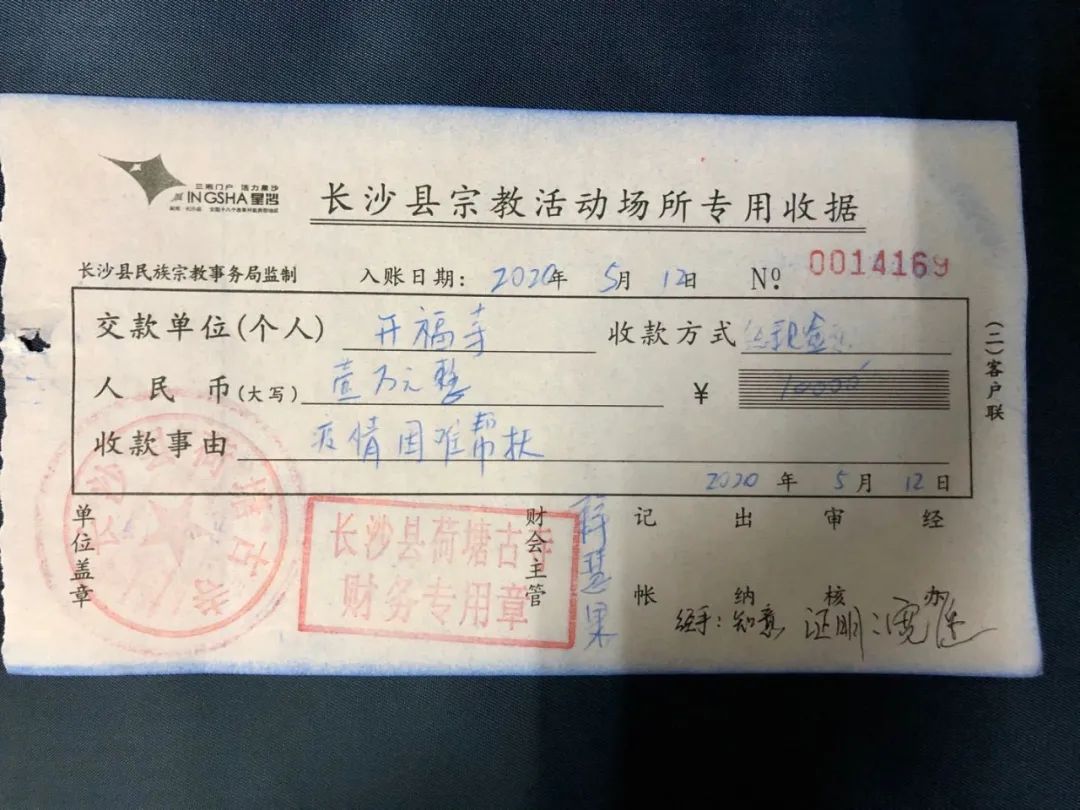 三湘门户 活力星沙
INGSHA星沙
长沙县宗教活动场所专用收据
长沙县民族宗教事务局监制 入账日期: 2020年 5月 12日 №: 0014169
交款单位(个人) 开福寺 收款方式 现金
人民币(大写) 壹万元整 ¥ 10000
收款事由 疫情困难帮扶
2020年 5月 12日
(二)客户联
单位盖章
长沙县荷塘古寺
长沙县荷塘古寺
财务专用章
财会主管 释慧果
记帐 出纳 审核 经办
经手:知意 证明: